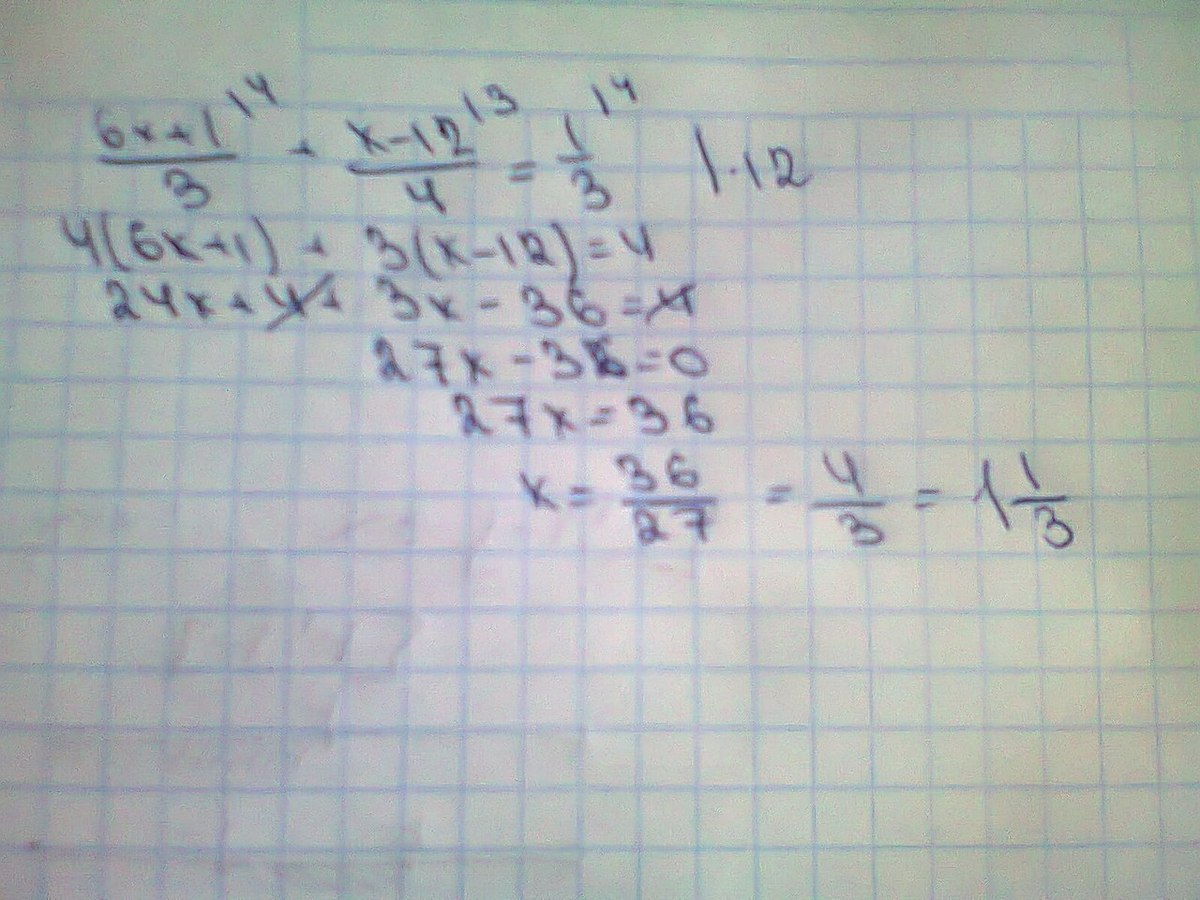 6x+1^{\4}/3 + x-12^{\3}/4 = 1^{\4}/3 |·12
4(6x+1) + 3(x-12)=4
24x+4+ 3x-36=4
27x-36=0
27x=36
x= 36/27 = 4/3 = 1 1/3